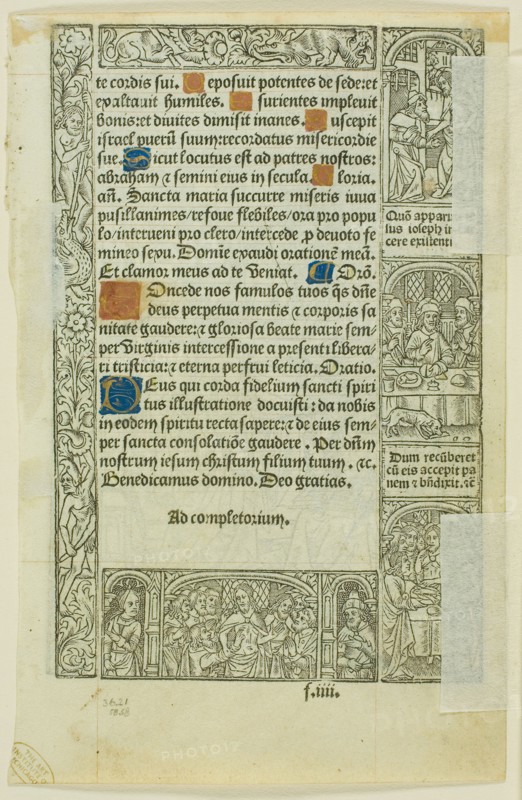 te cordis sui. Deposuit potentes de sede: et
exaltauit humiles. Esurientes impleuit
bonis: et diuites dimisit inanes. Suscepit
israel puerū suum: recordatus misericordie
sue. Sicut locutus est ad patres nostros:
abraham ⁊ semini eius in secula. Gloria.
añ. Sancta maria succurre miseris iuua
pusillanimes/ refoue flebiles/ ora pro popu
lo/ interueni pro clero/ intercede ꝓ deuoto fe
mineo sexu. Domīe exaudi orationē meā.
Et clamor meus ad te veniat. Orō.
Concede nos famulos tuos q̄s dñe
deus perpetua mentis ⁊ corporis sa
nitate gaudere: ⁊ gloriosa beate marie sem-
per virginis intercessione a presenti libera-
ri tristicia: ⁊ eterna perfrui leticia. Oratio.
Deus qui corda fidelium sancti spiri
tus illustratione docuisti: da nobis
in eodem spiritu recta sapere: ⁊ de eius sem-
per sancta consolatiōe gaudere. Per dñm
nostrum iesum christum filium tuum. ⁊c.
Benedicamus domino. Deo gratias.
Ad completorium.
Quō appari
sus ioseph i
cere existenti
Dum recūberet
cū eis accepit pa
nem ⁊ bñdixit. ⁊c
f.iiii.
THE ART
INSTITUTE OF
CHICAGO
PHOTO17
PHOTO17